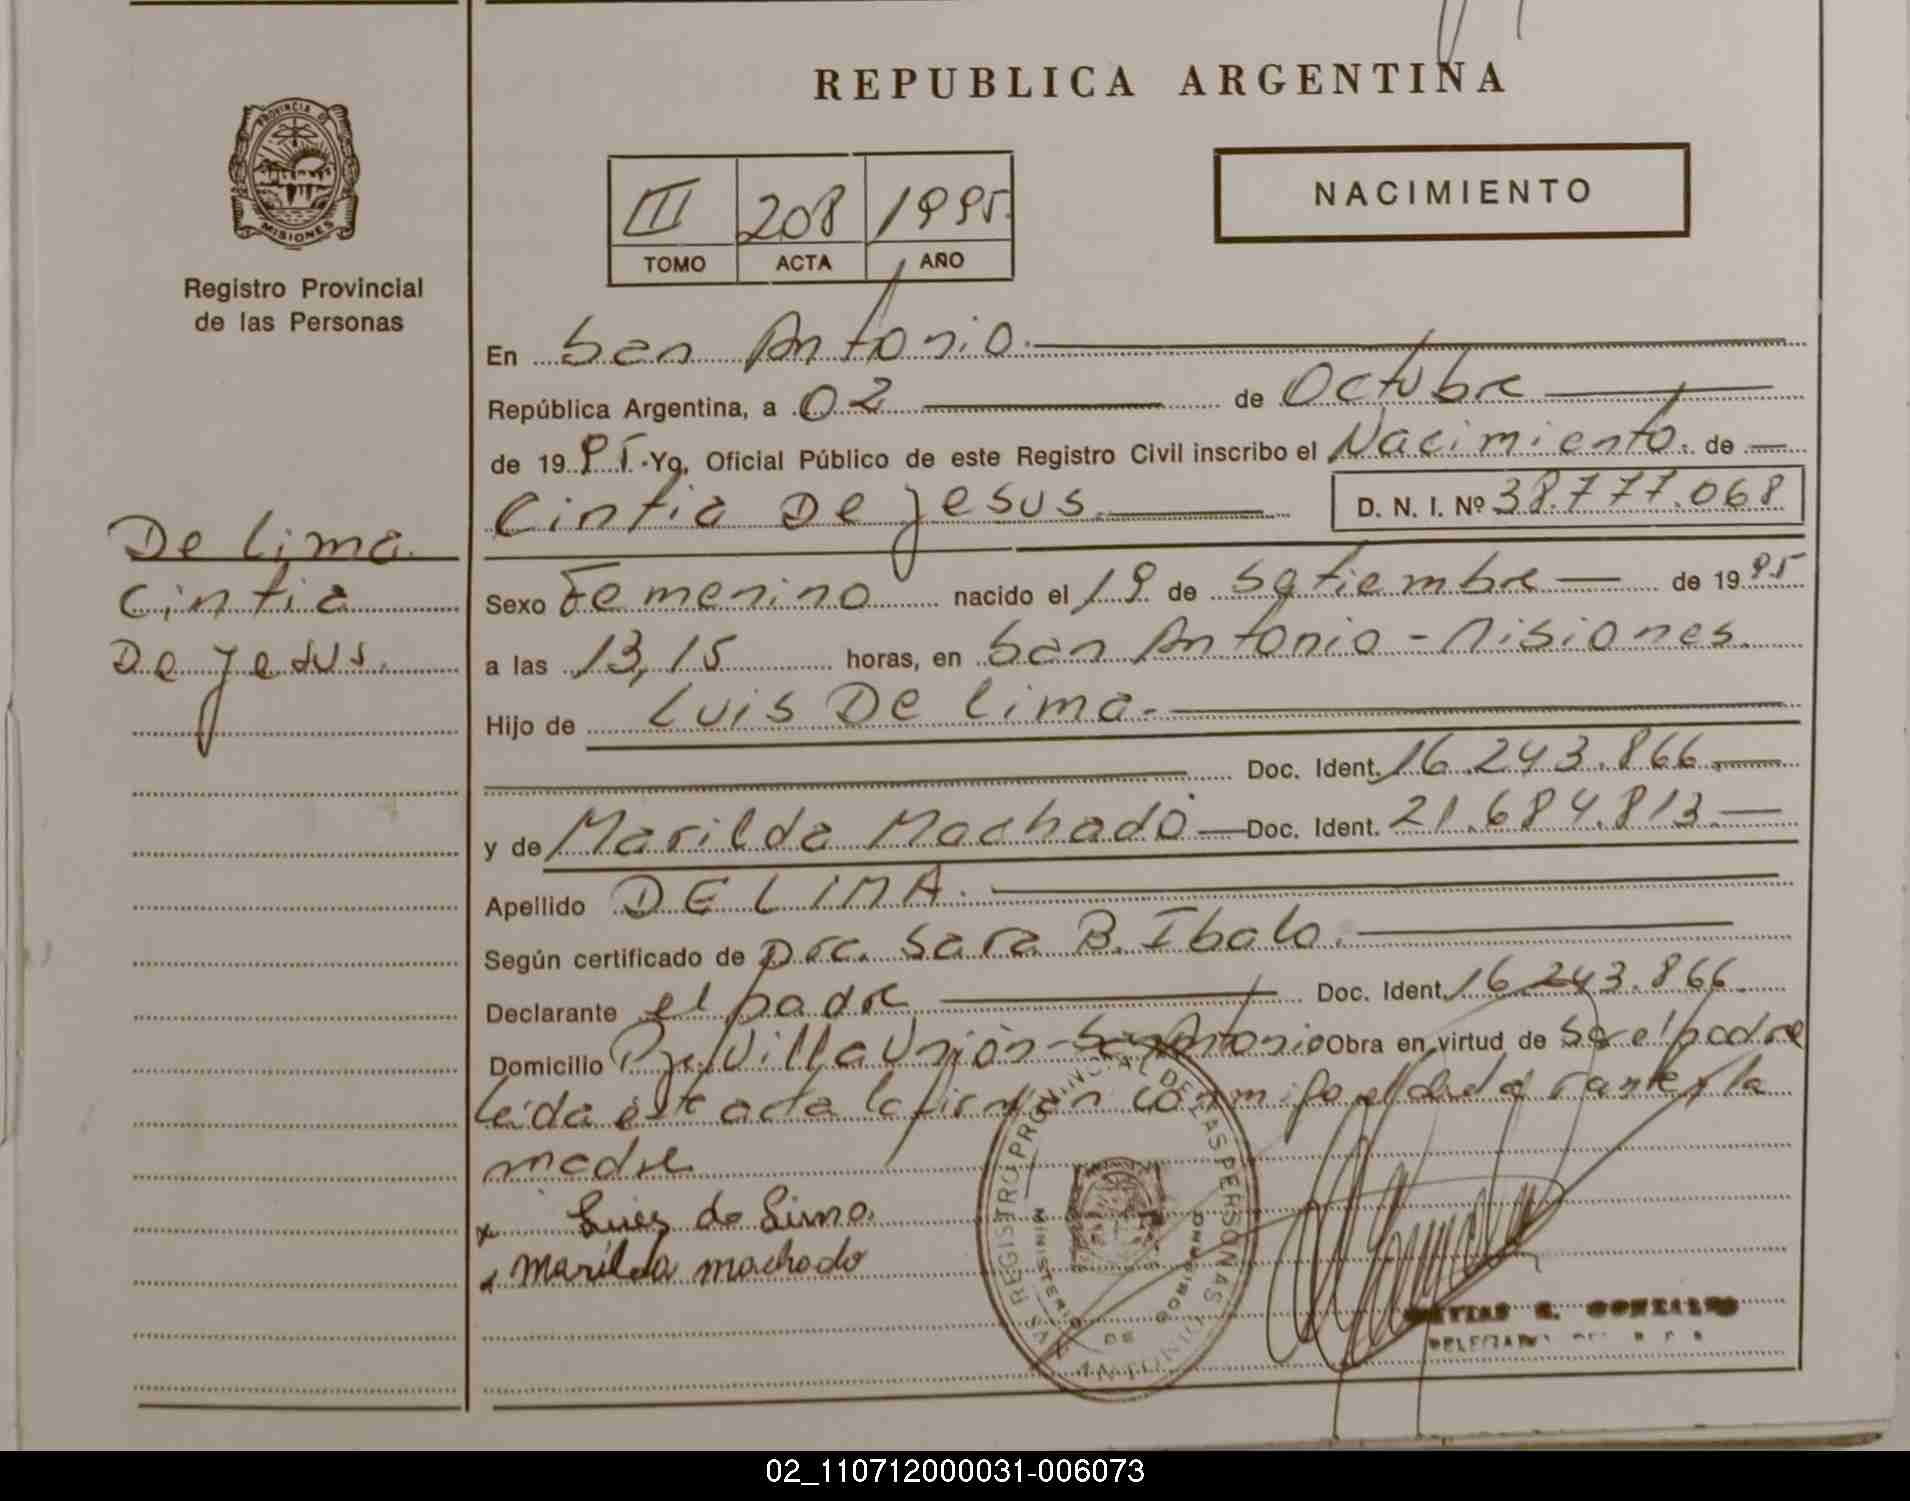 REPUBLICA ARGENTINA
PROVINCIA DE
MISIONES
Registro Provincial
de las Personas
III 208 1995
TOMO ACTA AÑO
NACIMIENTO
En San Antonio.
República Argentina, a 02 de Octubre
de 1995. Yo, Oficial Público de este Registro Civil inscribo el Nacimiento. de
Cintia De Jesus. D. N. I. Nº 38.777.068
De Lima.
Cintia
De Jesus.
Sexo Femenino nacido el 19 de Setiembre de 1995
a las 13,15 horas, en San Antonio - Misiones.
Hijo de Luis De Lima.
Doc. Ident. 16.243.866
y de Marilda Machado Doc. Ident. 21.684.813
Apellido DE LIMA.
Según certificado de Dra. Sara B. Ibalo.
Declarante el padre Doc. Ident. 16.243.866
Domicilio Villa Unión - San Antonio Obra en virtud de Ser el padre
Leída esta acta la firman conmigo el declarante y la
madre
x Luis de Lima.
x Marilda machado
REGISTRO PROVINCIAL DE LAS PERSONAS
MINISTERIO DE GOBIERNO
GONZALEZ
DELEGADO
02_110712000031-006073